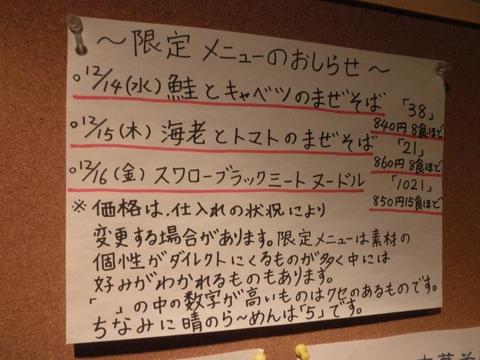 ～限定メニューのおしらせ～
○12/14(水) 鮭とキャベツのまぜそば 「38」
840円 8食ほど
○12/15(木) 海老とトマトのまぜそば 「21」
860円 8食ほど
○12/16(金) スワローブラックミートヌードル 「1021」
850円15食ほど
※価格は、仕入れの状況により
変更する場合があります。限定メニューは素材の
個性がダイレクトにくるものが多く中には
好みがわかれるものもあります。
「　」の中の数字が高いものはクセのあるものです。
ちなみに晴のら～めんは「5」です。